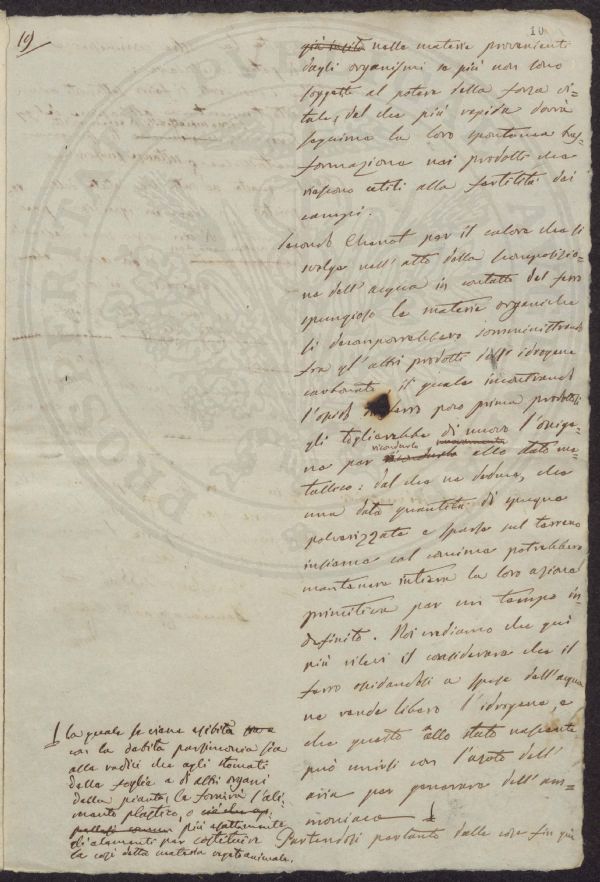 19
10
già insito nelle materie provenienti
dagli organismi se più non sono
soggette al potere della forza vi=
tale, dal che più rapida dovrà
seguirne la loro spontanea tras=
formazione nei prodotti che
riescono utili alla fertilità dei
campi.
Secondo Chenot per il calore che si
svolge nell'atto della scomposizio=
ne dell'acqua in contatto del ferro
spungioso le materie organiche
si decomporrebbero somministrando
fra gl'altri prodotti dell'idrogene
carbonato il quale incontrando
l'ossido ferro poco prima prodottosi
gli toglierebbe di nuovo l'ossige=
ne per ricondurlo allo stato me=
tallico: dal che ne deduce, che
una data quantità di spugne
polverizzate e sparse sul terreno
insieme col concime potrebbero
mantenere intiera la loro azione
primitiva per un tempo in=
definito. Noi crediamo che qui
più rilevi il considerare che il
ferro ossidandosi a spese dell'acqua
ne rende libero l'idrogene, e
che questo allo stato nascente
può unirsi con l'azoto dell'
aria per generare dell'am=
moniaca
la quale se viene esibita
con la debita parsimonia sia
alle radici che agli stomati
delle foglie e di altri organi
della pianta, le fornirà l'ali=
mento plastico, o
più esattamente
gli elementi per costituire
la così detta materia vegeto animale.
Partendosi pertanto dalle cose fin qui